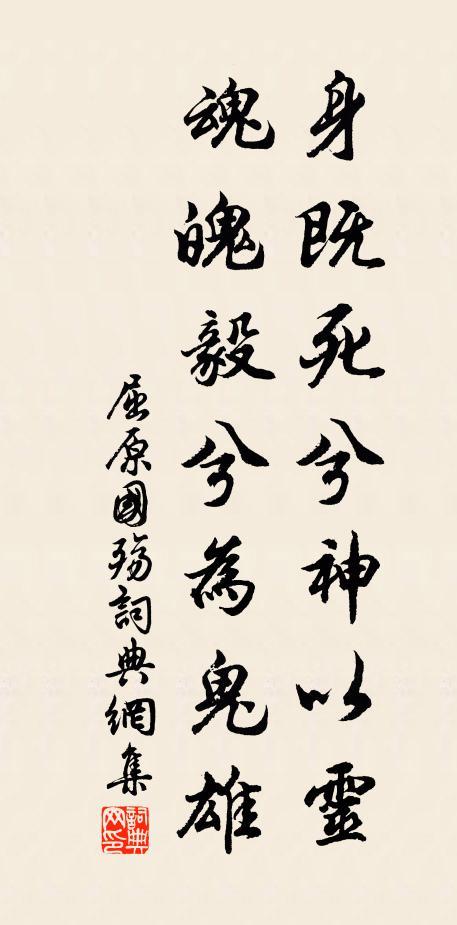 身既死兮神以靈
魂魄毅兮為鬼雄
屈原國殤詞典網集
詞典网印